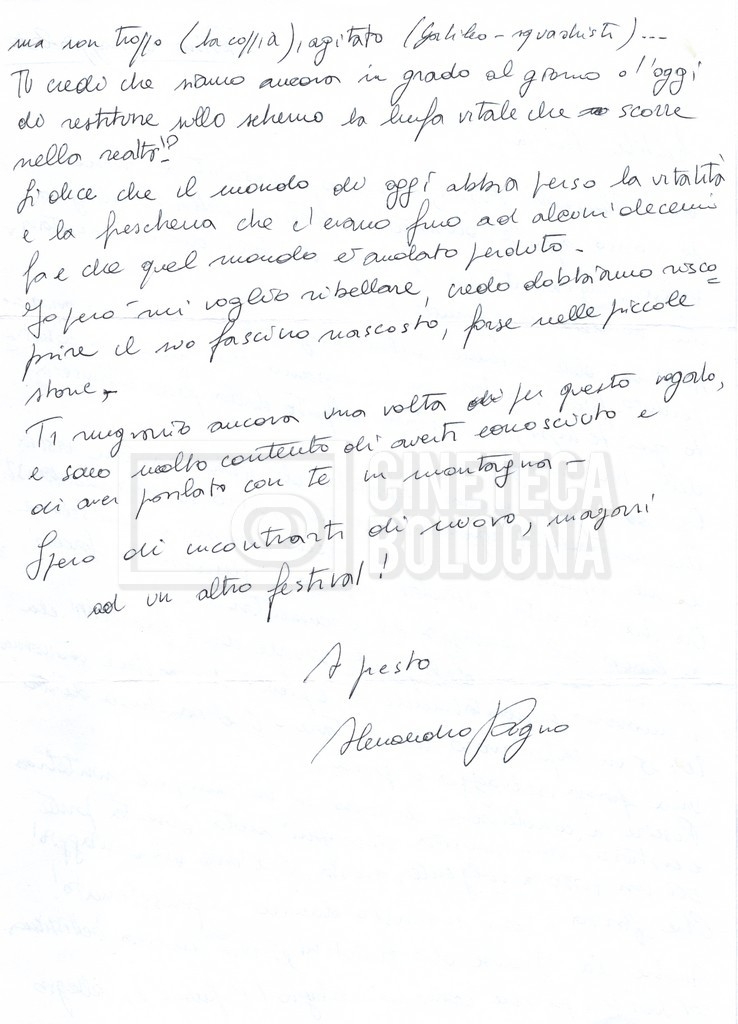 ma non troppo (la coppia), agitato (Galileo - squadristi)...
Tu credi che siamo ancora in grado al giorno d'oggi
di restituire sullo schermo la linfa vitale che scorre
nella realtà!?
Si dice che il mondo di oggi abbia perso la vitalità
e la freschezza che c'erano fino ad alcuni decenni
fa e che quel mondo è andato perduto.
Io però mi voglio ribellare, credo dobbiamo risco=
prire il suo fascino nascosto, forse nelle piccole
storie.
Ti ringrazio ancora una volta per questo regalo,
e sono molto contento di averti conosciuto e
di aver parlato con te in montagna -
Spero di incontrarti di nuovo, magari
ad un altro festival!
A presto
Alessandro
CINETECA
BOLOGNA